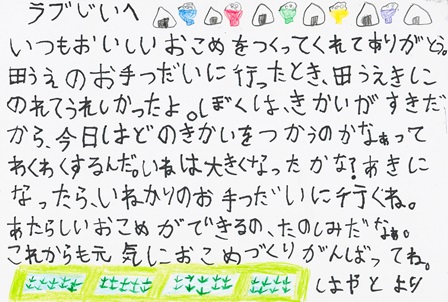 ラブじいへ
いつもおいしいおこめをつくってくれてありがとう。
田うえのお手つだいに行ったとき、田うえきに
のれてうれしかったよ。ぼくは、きかいがすきだ
から、今日はどのきかいをつかうのかなぁって
わくわくするんだ。いねは大きくなったかな？あきに
なったら、いねかりのお手つだいに行くね。
あたらしいおこめができるの、たのしみだなぁ。
これからも元気におこめづくりがんばってね。
はやとより